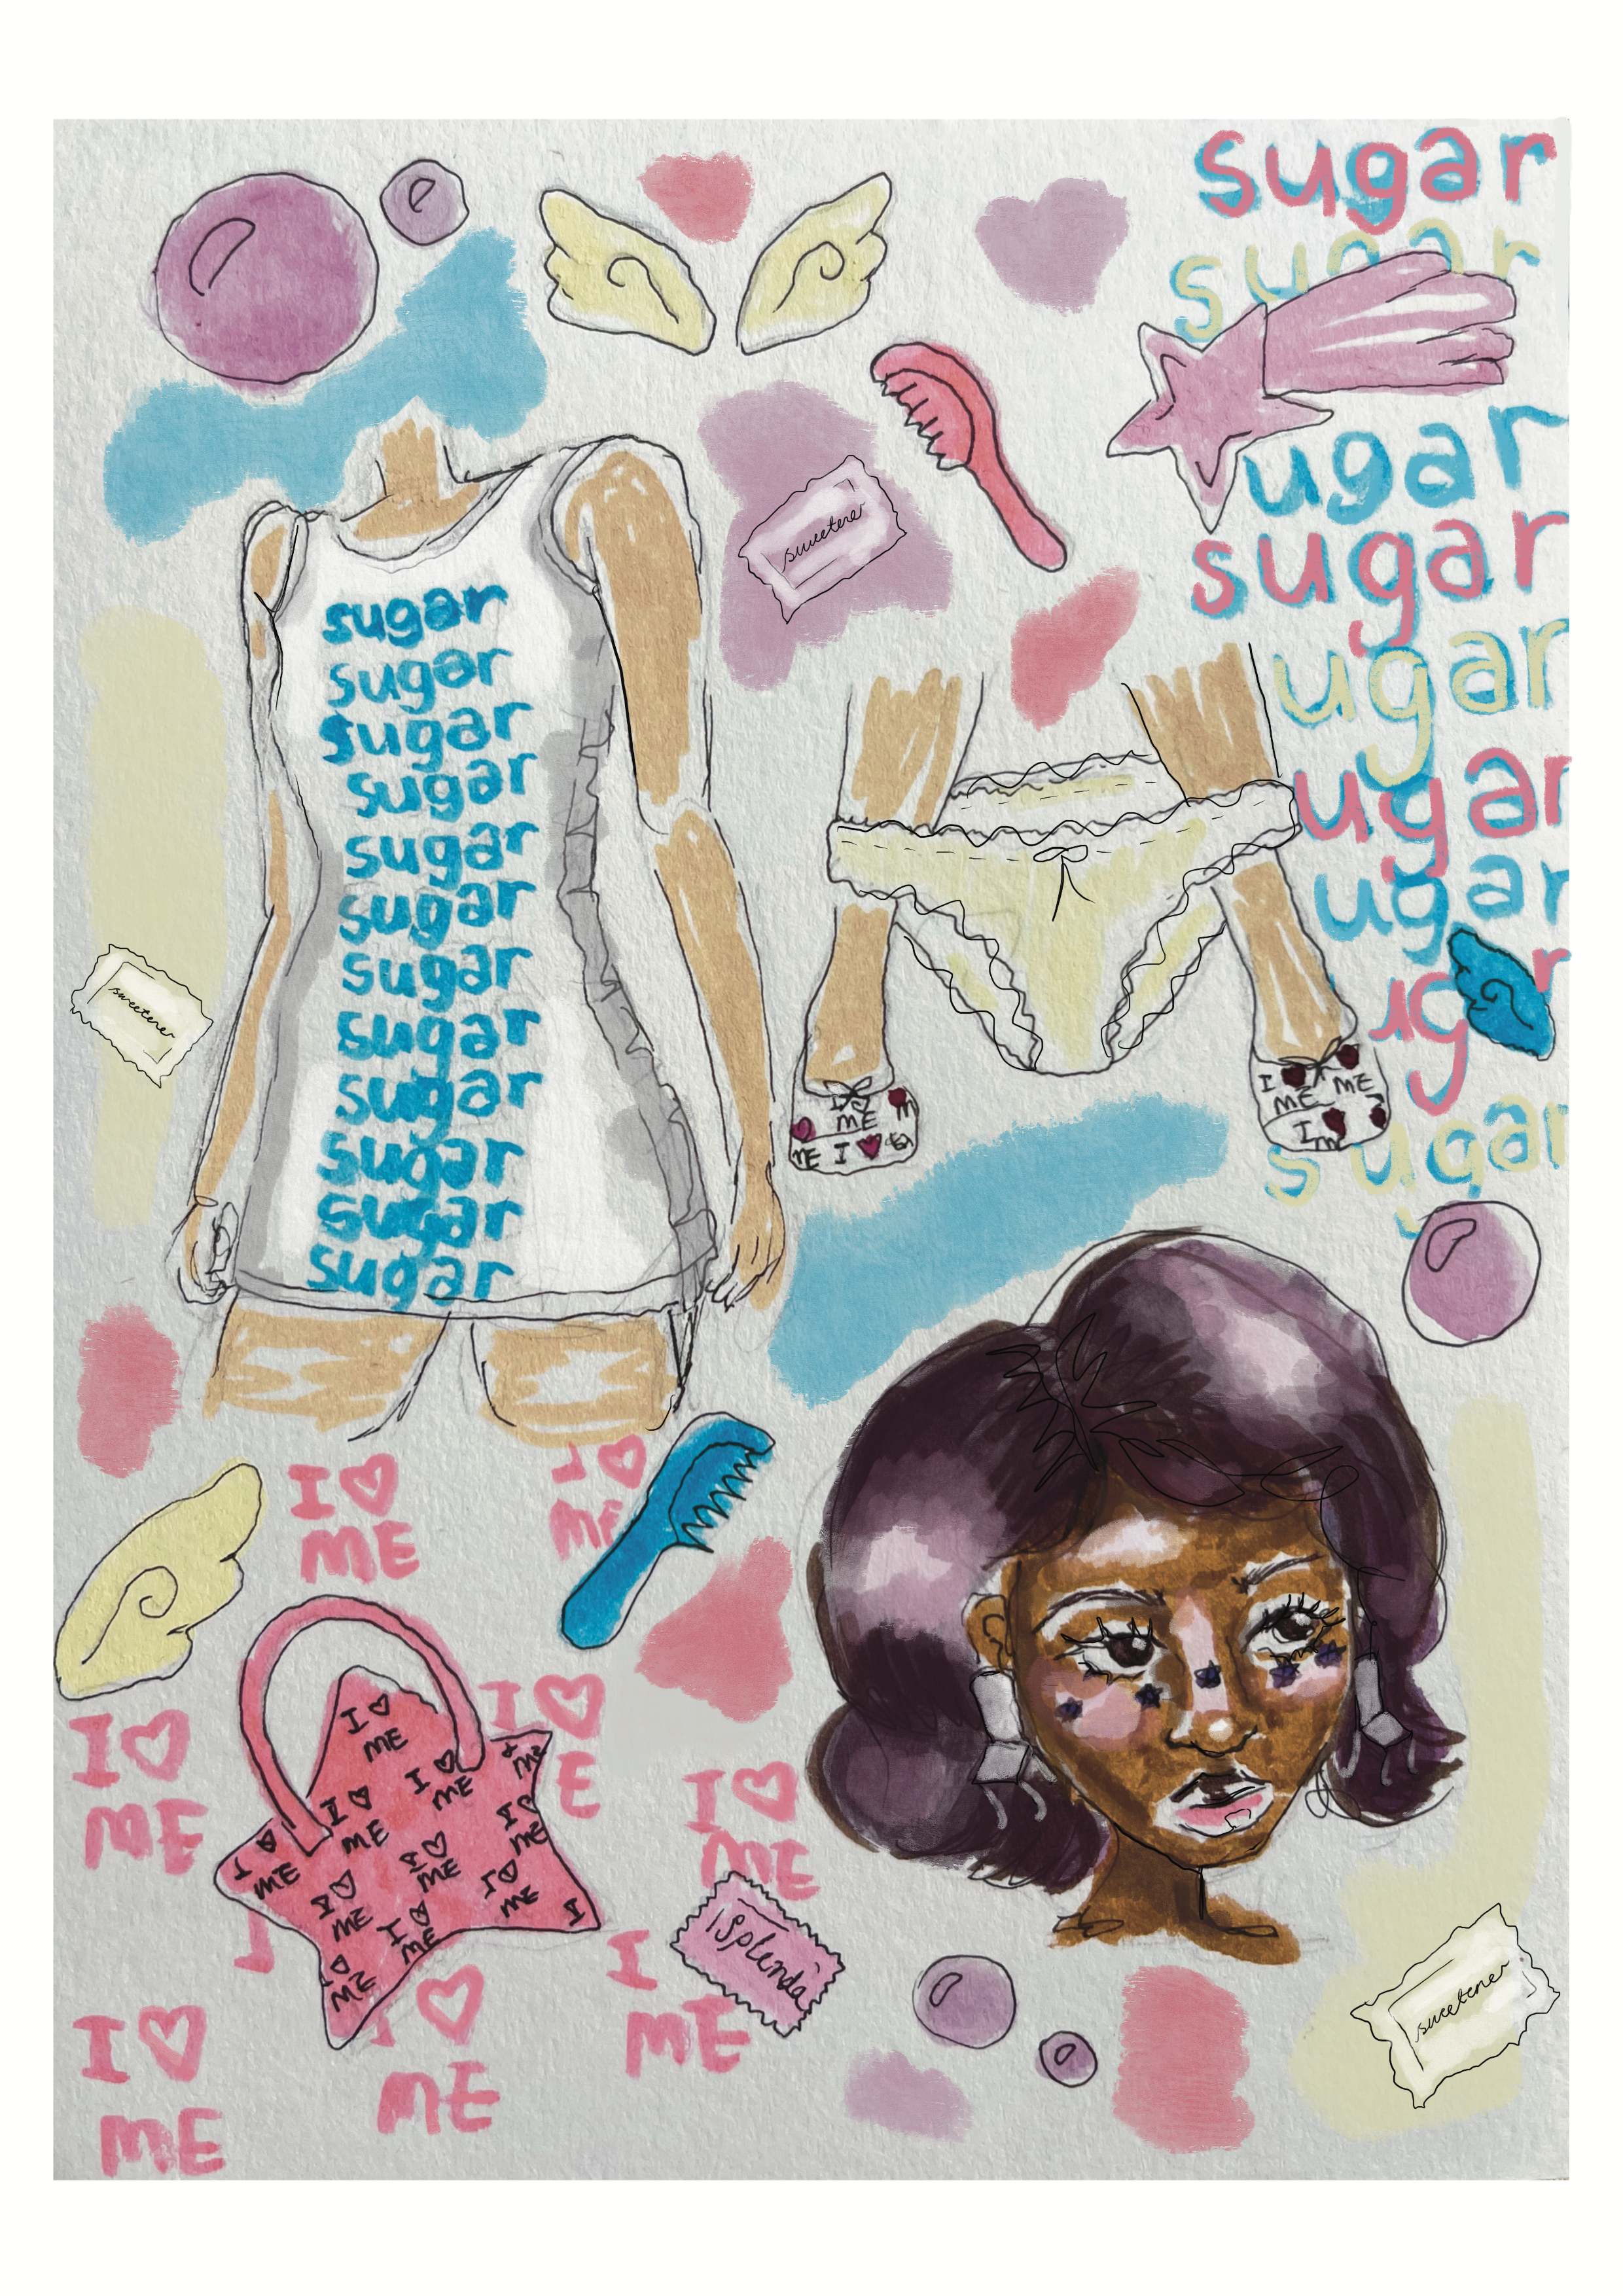 sugar
sugar
ugar
sugar
ugar
ugar
ugar
ug r
sugar
sweetener
sugar
sugar
sugar
sugar
sugar
sugar
sugar
sugar
sugar
sugar
sugar
sugar
sweetener
I ♡ ME
ME I ♡
I ♥ ME
ME
I
I ♡
ME
I ♡
ME
I ♡
ME
I ♡
E
I ♡
ME
I ♡
ME
I ♡
ME
I ♡
ME
I ♡
ME
I ♡
ME
I ♡
ME
I ♡
ME
I ♡
ME
I ♡
ME
I ♡
ME
I
Splenda
I
ME
I ♡
ME
I ♡
ME
sweetener